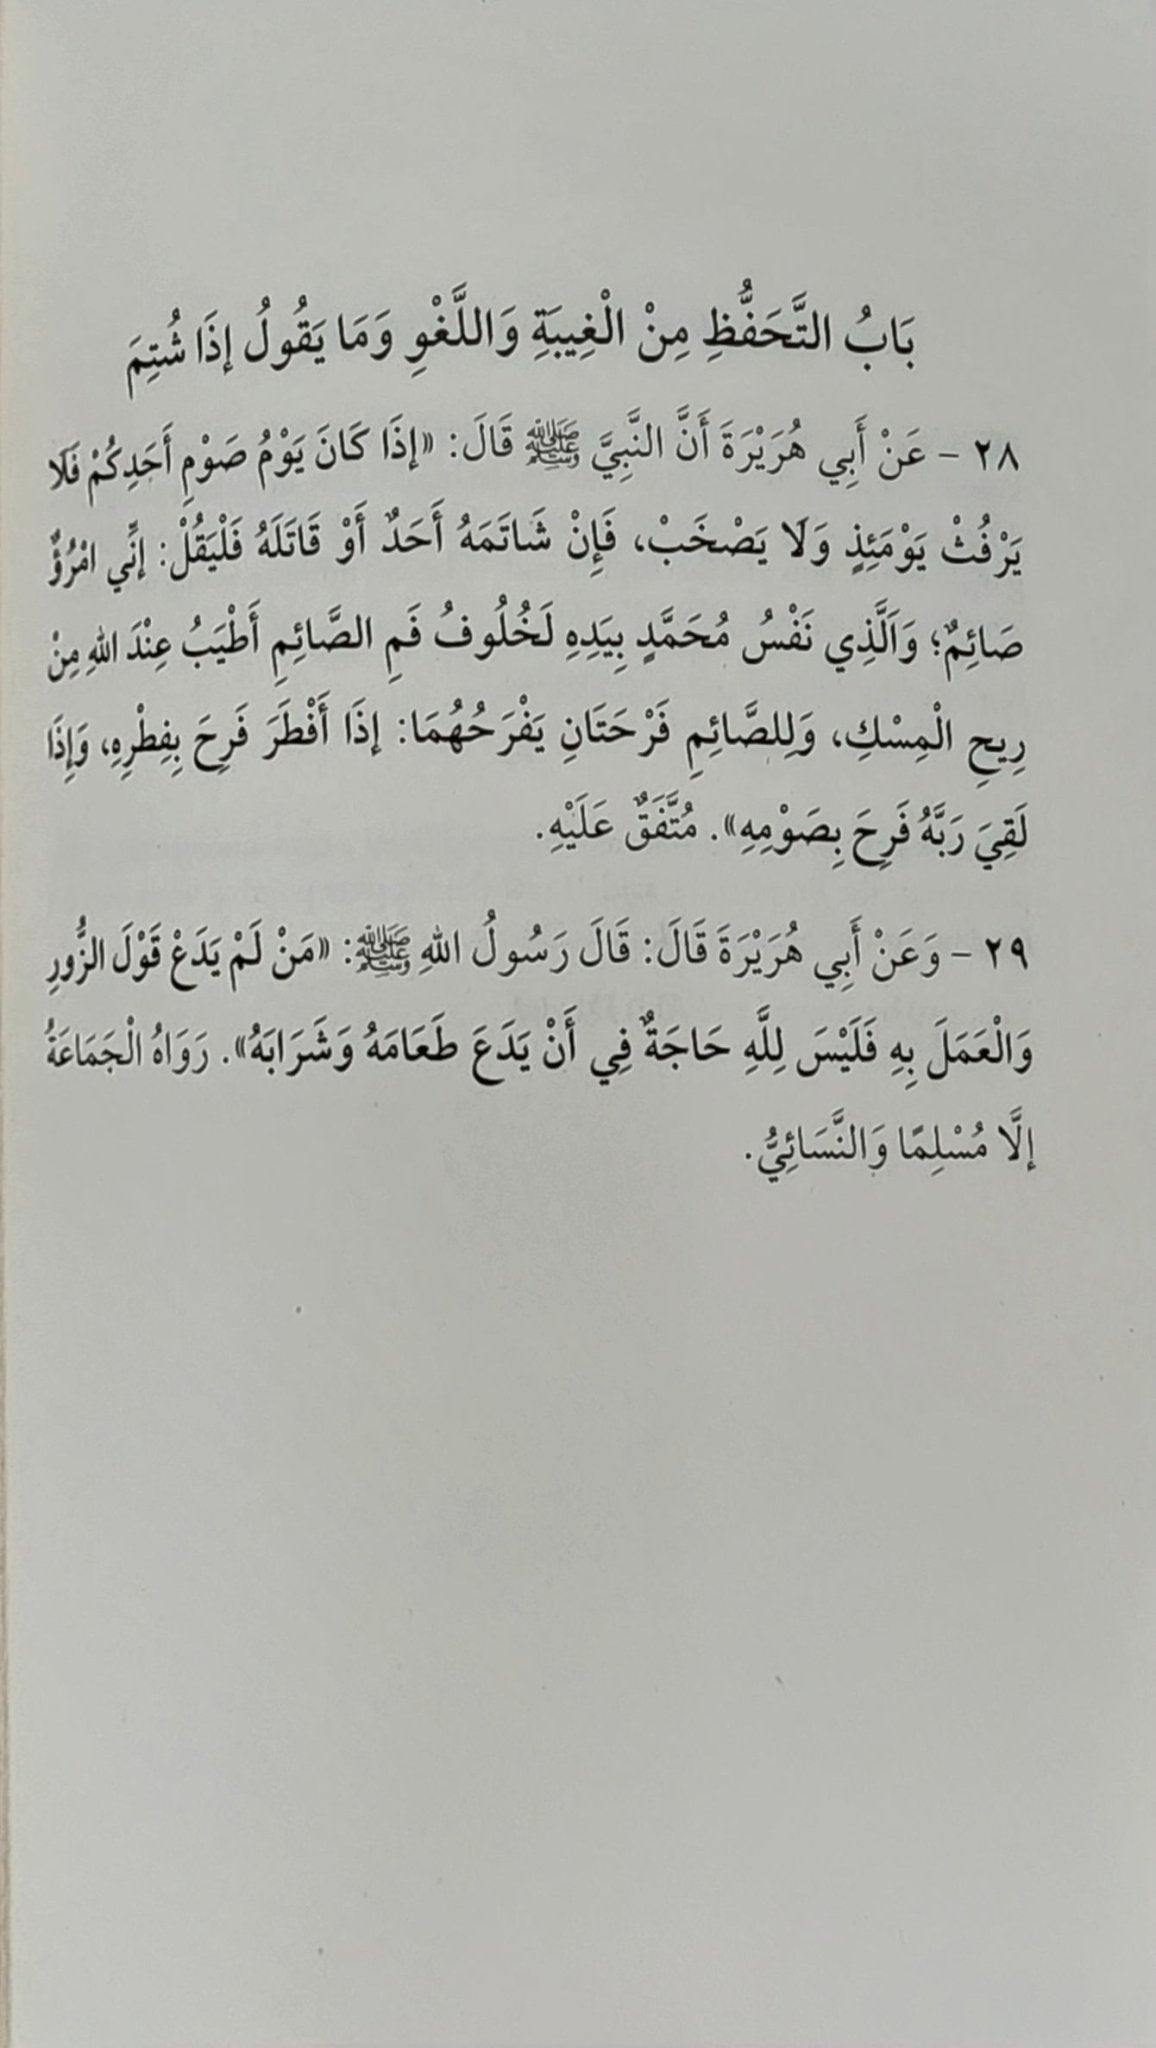 بَابُ التَّحَفُّظِ مِنْ الْغِيبَةِ وَاللَّغْوِ وَمَا يَقُولُ إذَا شُتِمَ
٢٨ - عَنْ أَبِي هُرَيْرَةَ أَنَّ النَّبِيَّ ﷺ قَالَ: «إذَا كَانَ يَوْمُ صَوْمِ أَحَدِكُمْ فَلَا
يَرْفُثْ يَوْمَئِذٍ وَلَا يَصْخَبْ، فَإِنْ شَاتَمَهُ أَحَدٌ أَوْ قَاتَلَهُ فَلْيَقُلْ: إنِّي امْرُؤٌ
صَائِمٌ؛ وَاَلَّذِي نَفْسُ مُحَمَّدٍ بِيَدِهِ لَخُلُوفُ فَمِ الصَّائِمِ أَطْيَبُ عِنْدَ اللهِ مِنْ
رِيحِ الْمِسْكِ، وَلِلصَّائِمِ فَرْحَتَانِ يَفْرَحُهُمَا: إذَا أَفْطَرَ فَرِحَ بِفِطْرِهِ، وَإِذَا
لَقِيَ رَبَّهُ فَرِحَ بِصَوْمِهِ». مُتَّفَقٌ عَلَيْهِ.
٢٩ - وَعَنْ أَبِي هُرَيْرَةَ قَالَ: قَالَ رَسُولُ اللهِ ﷺ: «مَنْ لَمْ يَدَعْ قَوْلَ الزُّورِ
وَالْعَمَلَ بِهِ فَلَيْسَ لِلَّهِ حَاجَةٌ فِي أَنْ يَدَعَ طَعَامَهُ وَشَرَابَهُ». رَوَاهُ الْجَمَاعَةُ
إلَّا مُسْلِمًا وَالنَّسَائِيُّ.